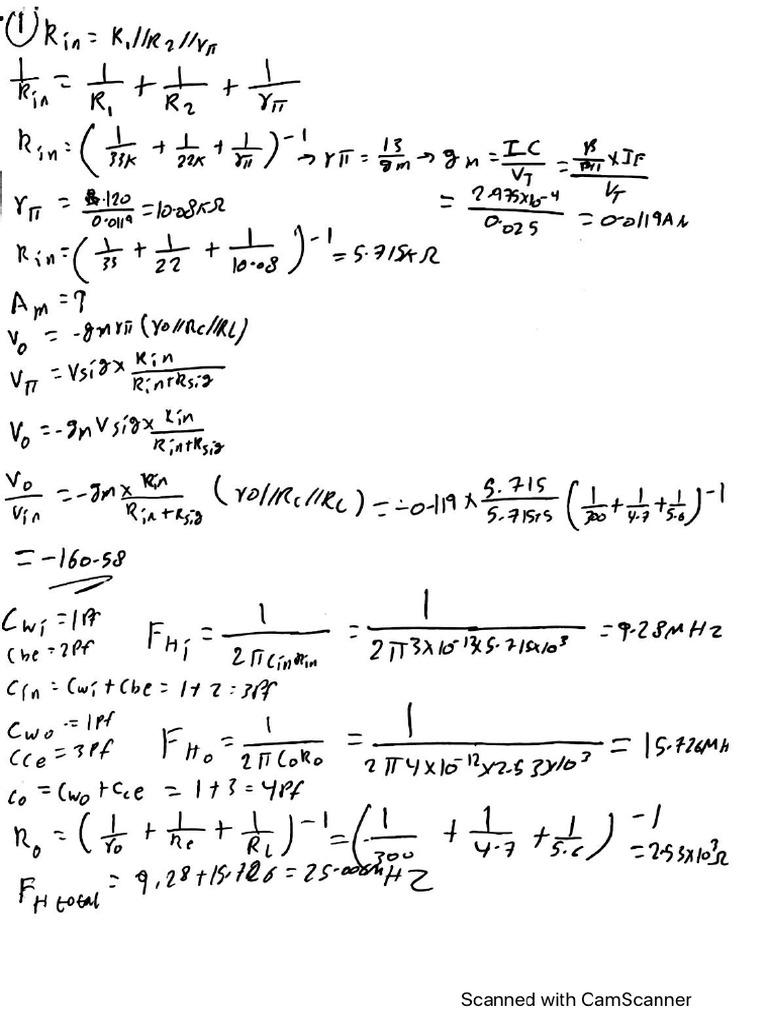 ① Rin = R1//R2//rπ
1/Rin = 1/R1 + 1/R2 + 1/rπ
Rin = (1/33K + 1/22K + 1/rπ)^-1 → rπ = B/gm → gm = IC/VT = (B/B+1 × IE)/VT
rπ = 120/0.0119 = 10.08KΩ = 2.975×10^-4/0.025 = 0.0119A/V
Rin = (1/33 + 1/22 + 1/10.08)^-1 = 5.715KΩ
Am = ?
Vo = -gmrπ (ro//Rc//RL)
Vπ = Vsig × Rin/Rin+Rsig
Vo = -gm Vsig × Rin/Rin+Rsig
Vo/Vin = -gm × Rin/Rin+Rsig (ro//Rc//RL) = -0.119 × 5.715/5.715+5 (1/300 + 1/4.7 + 1/5.6)^-1
= -160.58
Cwi = 1Pf
Cbe = 2Pf FHi = 1/2πCinRin = 1/2π3×10^-12×5.715×10^3 = 9.28MHz
Cin = Cwi + Cbe = 1+2 = 3Pf
Cwo = 1Pf
Cce = 3Pf FHo = 1/2πCoRo = 1/2π4×10^-12×2.53×10^3 = 15.726MH
Co = Cwo + Cce = 1+3 = 4Pf
Ro = (1/ro + 1/Rc + 1/RL)^-1 = (1/300 + 1/4.7 + 1/5.6)^-1 = 2.53×10^3Ω
FH total = 9.28+15.726 = 25.006MHZ
Scanned with CamScanner